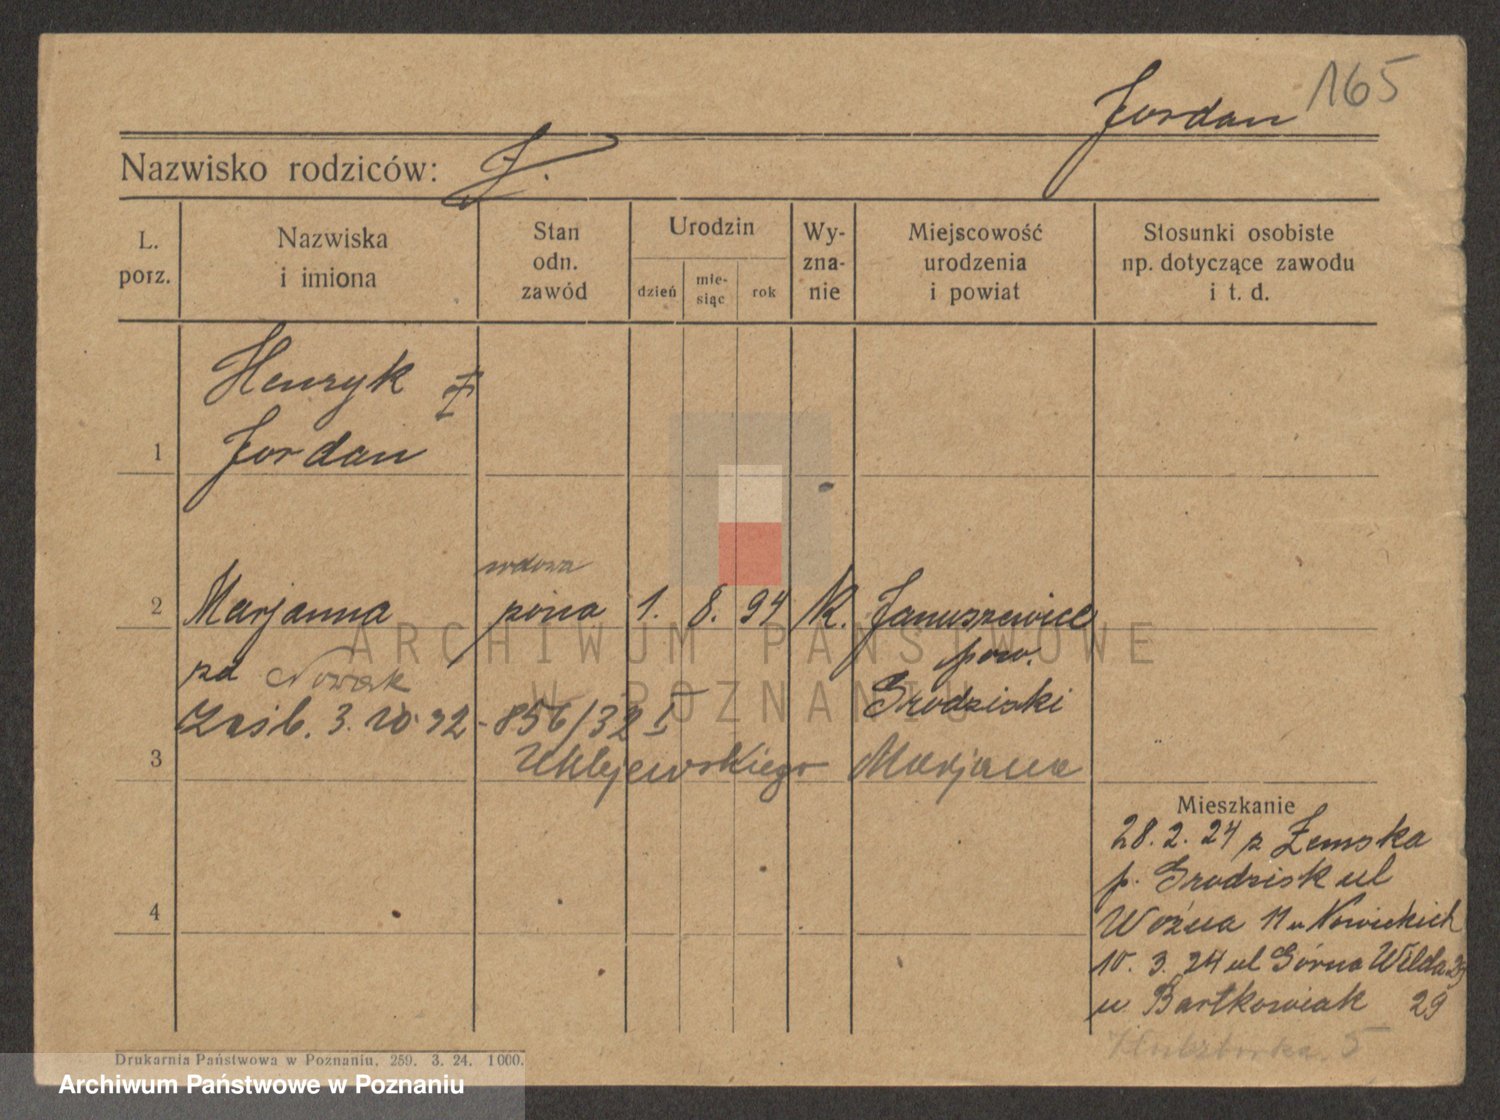 165
Jordan
Nazwisko rodziców: J.
L. porz.
Nazwiska i imiona
Stan odn. zawód
Urodzin
dzień
mie- siąc
rok
Wy- zna- nie
Miejscowość urodzenia i powiat
Stosunki osobiste np. dotyczące zawodu i t. d.
Henryk
1 Jordan
wdowa
2 Marjanna pona 1. 8. 94 K. Januszewice
pow.
zd Nowak Grodziski
Zaśb. 3. 10. 32 - 856/32 I
3 Uklejewskiego Marjana
Mieszkanie
28. 2. 24 z Zemska
p. Grodzisk ul
4 Woźna 11 u Nowickich
10. 3. 24 ul Górna Wilda 29
u Bartkowiak 29
5
Drukarnia Państwowa w Poznaniu. 259. 3. 24. 1000.
ARCHIWUM PAŃSTWOWE
W POZNANIU
Archiwum Państwowe w Poznaniu